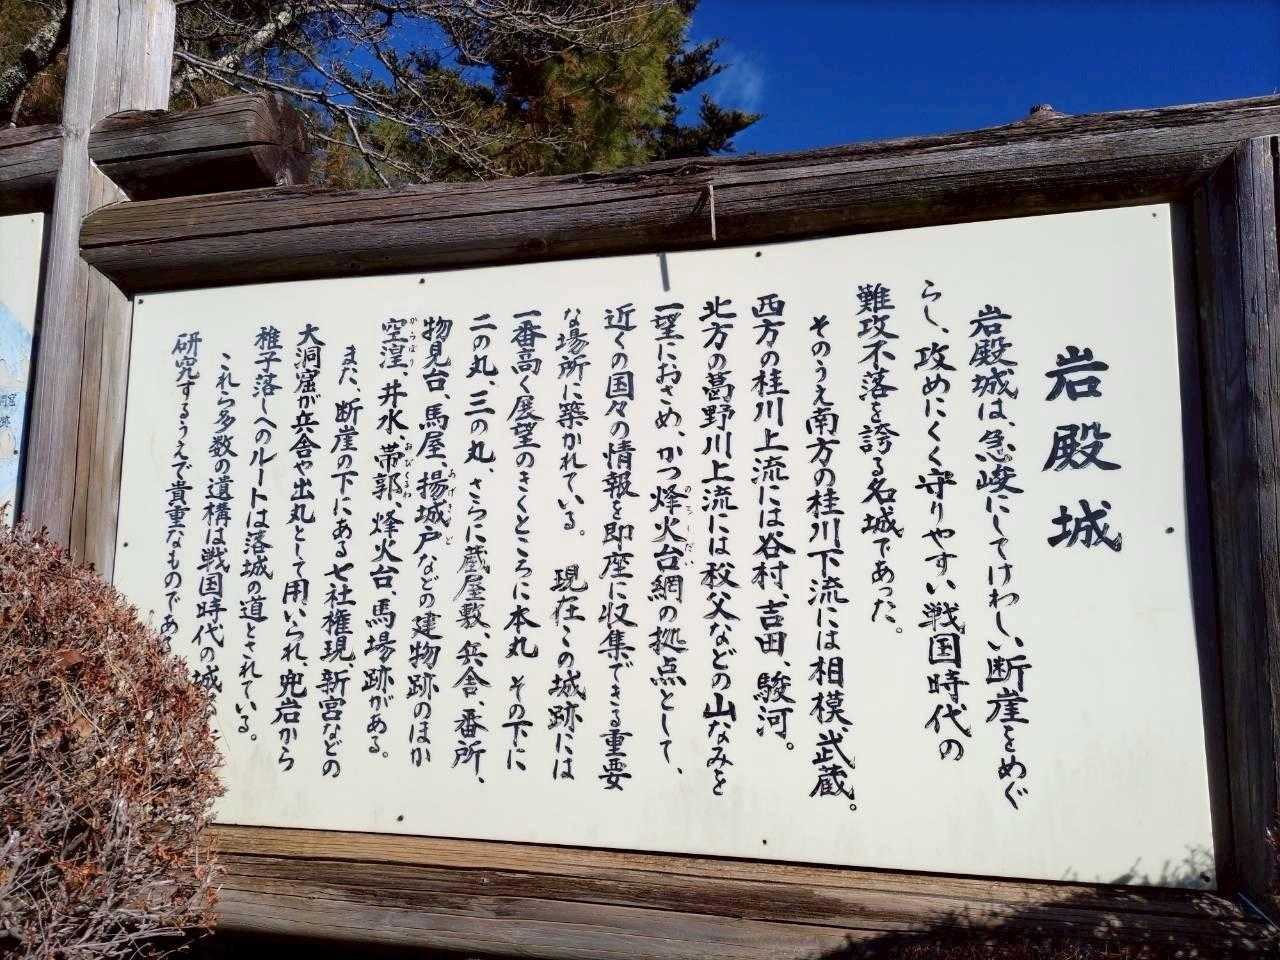 岩殿城
岩殿城は、急峻にしてけわしい断崖をめぐ
らし、攻めにくく守りやすい戦国時代の
難攻不落を誇る名城であった。
そのうえ南方の桂川下流には相模、武蔵。
西方の桂川上流には谷村、吉田、駿河。
北方の葛野川上流には秩父などの山なみを
一望におさめ、かつ烽火台網の拠点として、
のろしだい
近くの国々の情報を即座に収集できる重要
な場所に築かれている。 現在この城跡には
一番高く展望のきくところに本丸 その下に
二の丸、三の丸、さらに蔵屋敷、兵舎、番所、
物見台、馬屋、揚城戸などの建物跡のほか
あげきど
空湟、井水、帯郭、烽火台、馬場跡がある。
からぼり
おびくるわ
また、断崖の下にある七社権現、新宮などの
大洞窟が兵舎や出丸として用いられ、兜岩から
稚子落しへのルートは落城の道とされている。
これら多数の遺構は戦国時代の城
研究するうえで貴重なものである